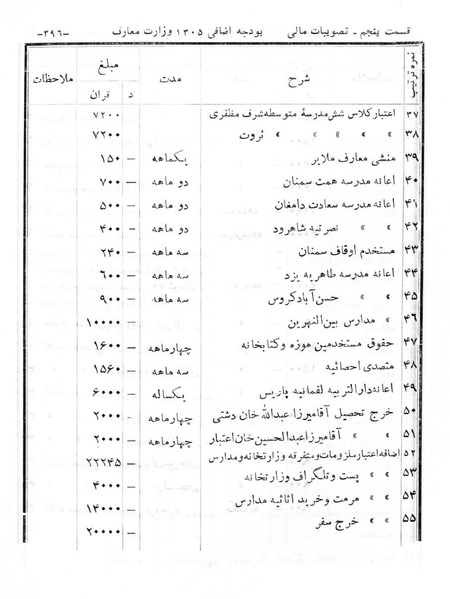 قسمت پنجم ـ تصویبات مالی بودجه اضافی ۱۳۰۵ وزارت معارف —۳۹۶—
نمره ترتیب شرح مدت مبلغ ملاحظات
قران د
۳۷ اعتبار کلاس شش مدرسهٔ متوسطه شرف مظفری ۷۲۰۰
۳۸ » » » » » ثروت ۷۲۰۰
۳۹ منشی معارف ملایر یکماهه — ۱۵۰
۴۰ اعانه مدرسه همت سمنان دو ماهه — ۷۰۰
۴۱ اعانه مدرسه سعادت دامغان دو ماهه — ۵۰۰
۴۲ » » نصرتیه شاهرود دو ماهه — ۴۰۰
۴۳ مستخدم اوقاف سمنان سه ماهه — ۲۴۰
۴۴ اعانه مدرسه طاهریه یزد سه ماهه — ۶۰۰
۴۵ » » حسن آباد کروس سه ماهه — ۹۰۰
۴۶ » مدارس بین النهرین — ۱۰۰۰۰
۴۷ حقوق مستخدمین موزه و کتابخانه چهارماهه — ۱۶۰۰
۴۸ متصدی احصائیه سه ماهه — ۱۵۶۰
۴۹ اعانه دارالتربیه لقمانیه پاریس یکساله — ۶۰۰۰
۵۰ خرج تحصیل آقامیرزا عبدالله خان دشتی چهارماهه — ۲۰۰۰
۵۱ » » آقامیرزا عبدالحسین خان اعتبار چهارماهه — ۲۰۰۰
۵۲ اضافه اعتبار ملزومات و متفرقه وزارتخانه و مدارس — ۲۲۲۴۵
۵۳ » » پست و تلگراف وزارتخانه — ۴۰۰۰
۵۴ » » مرمت و خرید اثاثیه مدارس — ۱۴۰۰۰
۵۵ » » خرج سفر — ۲۰۰۰۰